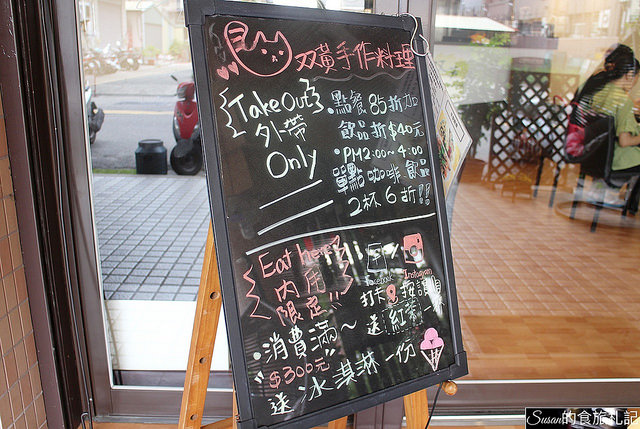 双黃手作料理
Take Out
外帶
Only
·點餐85折加
飲品折$40元
·PM2:00~4:00
單點咖啡飲品
2杯6折!!
Eat here
內用
限定
Facebook
Instagram
打卡 按讚
送紅茶一杯
·消費滿~
"$300元"
送冰淇淋一份
Susan的食旅札記